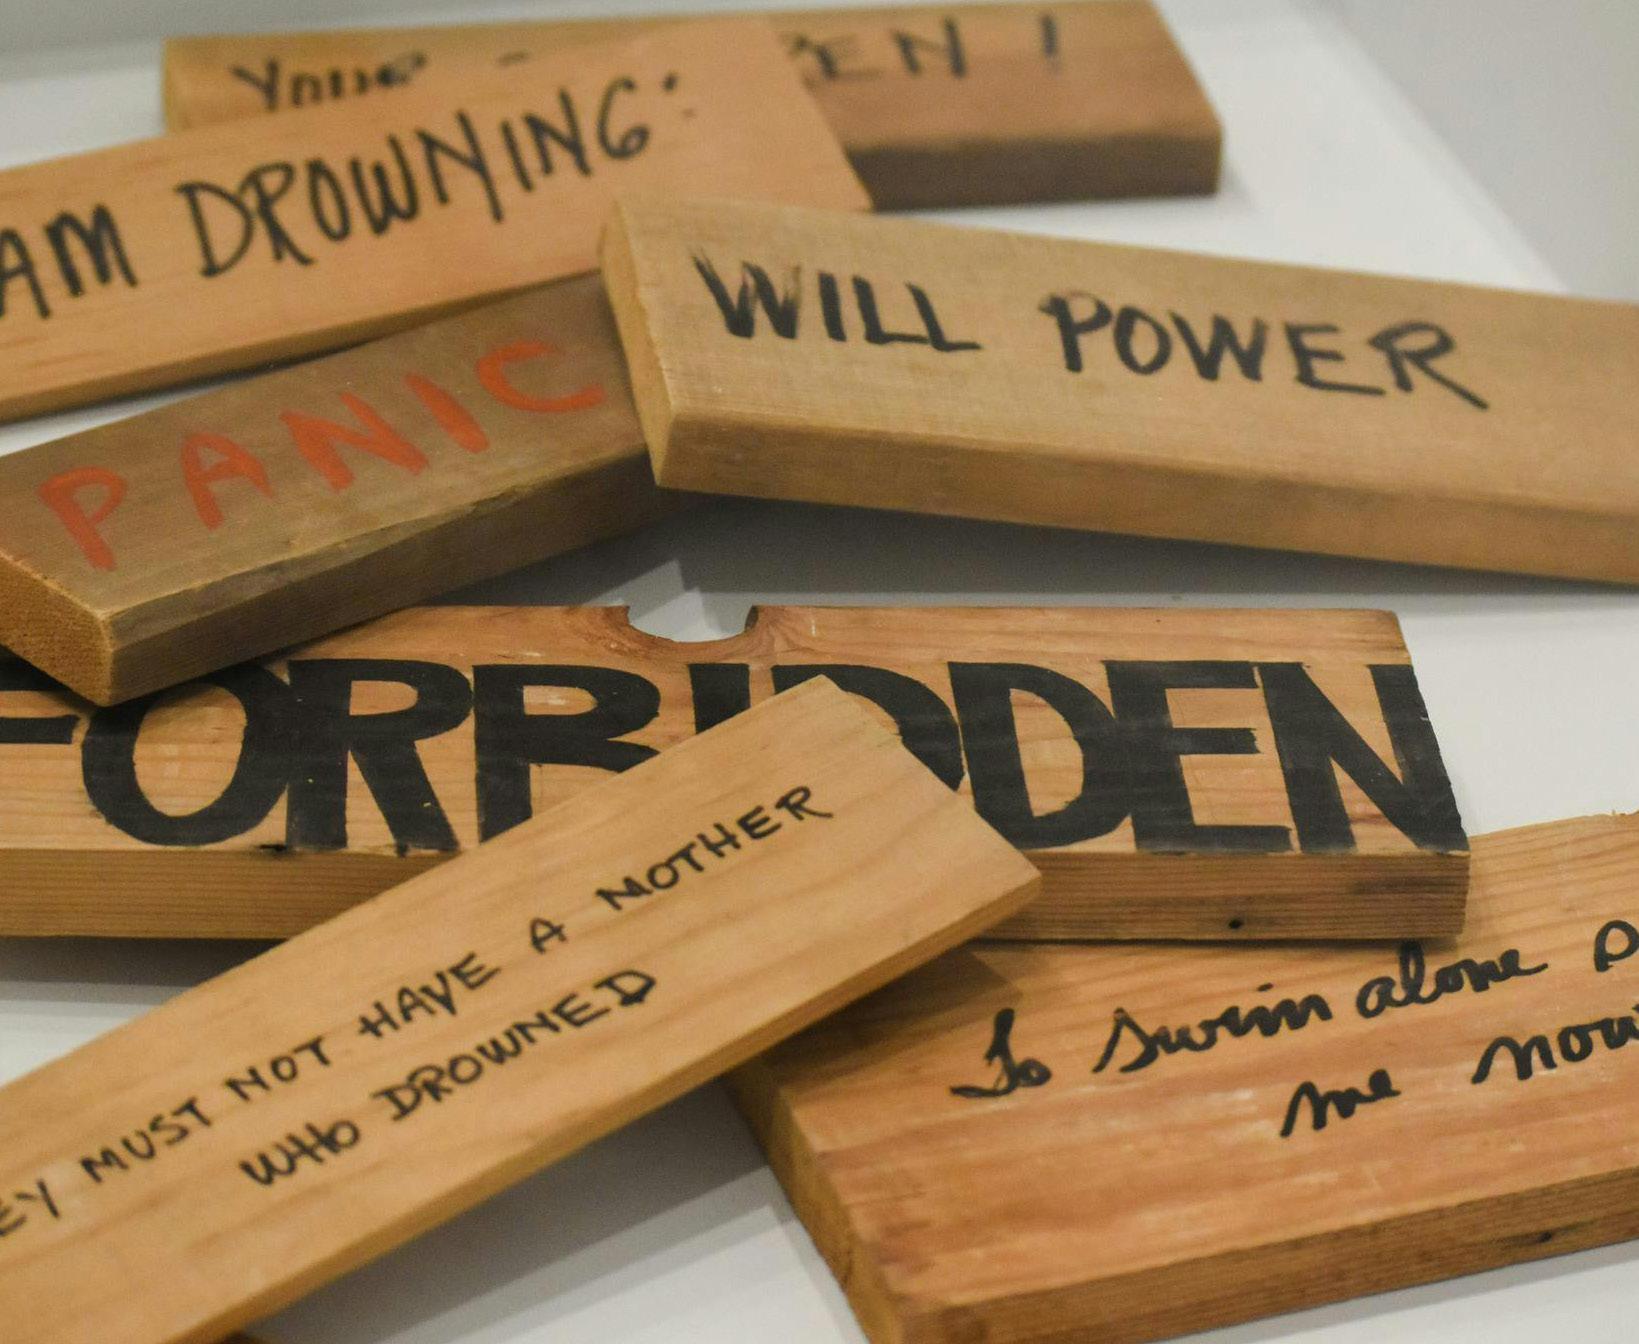 AM DROWNING:
WILL POWER
PANIC
FORBIDDEN
MUST NOT HAVE A MOTHER
WHO DROWNED
To swim alone
me